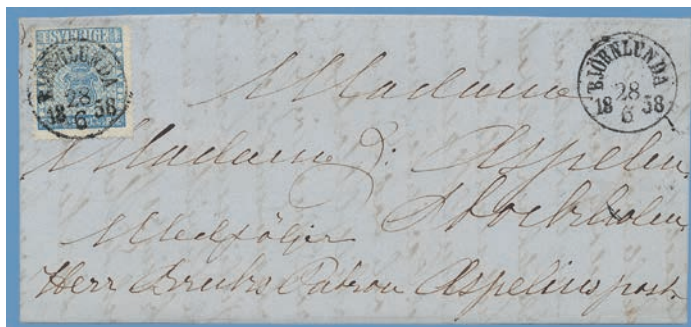 SVERIGE
BJÖRNLUNDA
28
6
18 58
BJÖRNLUNDA
28
6
18 58
Madame
Madame J: Aspelin
Stockholm
Medföljer
Herr Bruks Patron Aspelins post